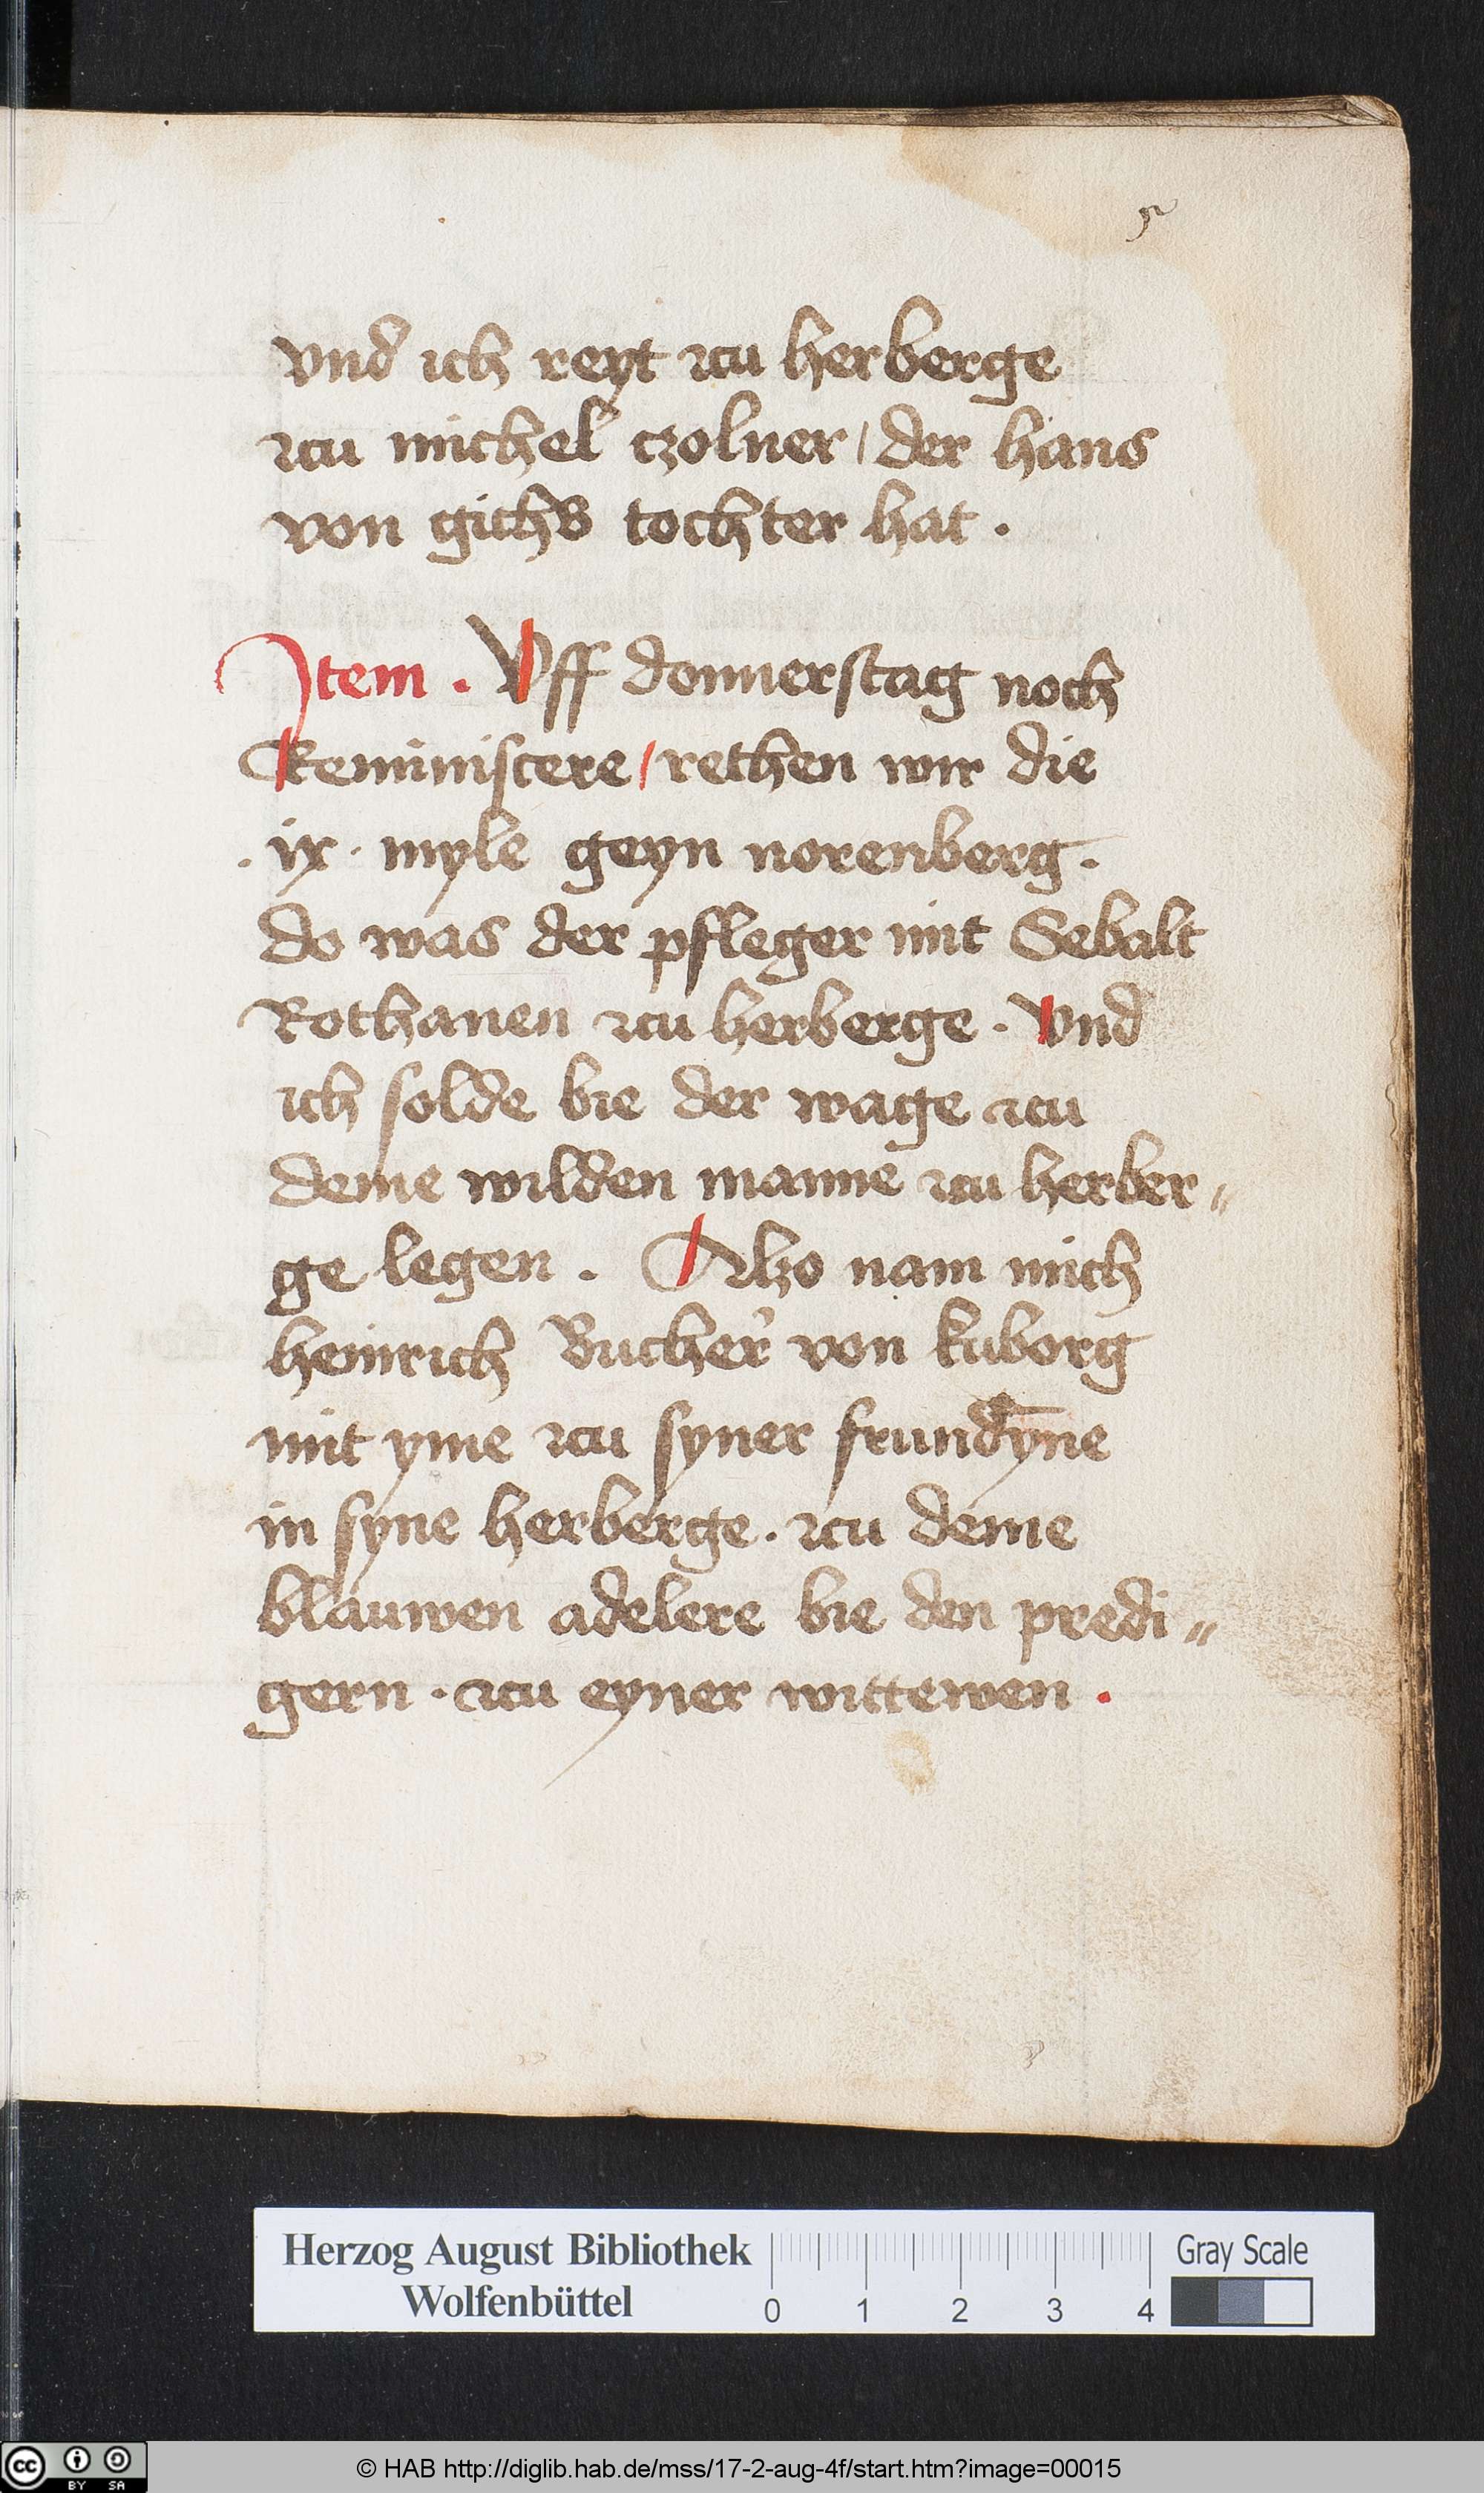 5
vnd ich reyt zcu herberge
zcu michel czolner / der hans
von gichß tochter hat .
Item . Vff donnerstag noch
Reminiscere / rethen wir die
. ix . myle geyn norenberg .
do was der pfleger mit Sebalt
Rothanen zcu herberge . Vnd
ich solde bie der wage zcu
deme wilden manne zcu herber„
ge legen . Alzo nam mich
heinrich Bucher von kuborg
mit yme zcu syner frundyne
in syne herberge . zcu deme
blauwen adelere bie den predi„
gern . zcu eyner wittewen .
Herzog August Bibliothek
Wolfenbüttel
0 1 2 3 4
Gray Scale
cc BY SA
© HAB http://diglib.hab.de/mss/17-2-aug-4f/start.htm?image=00015